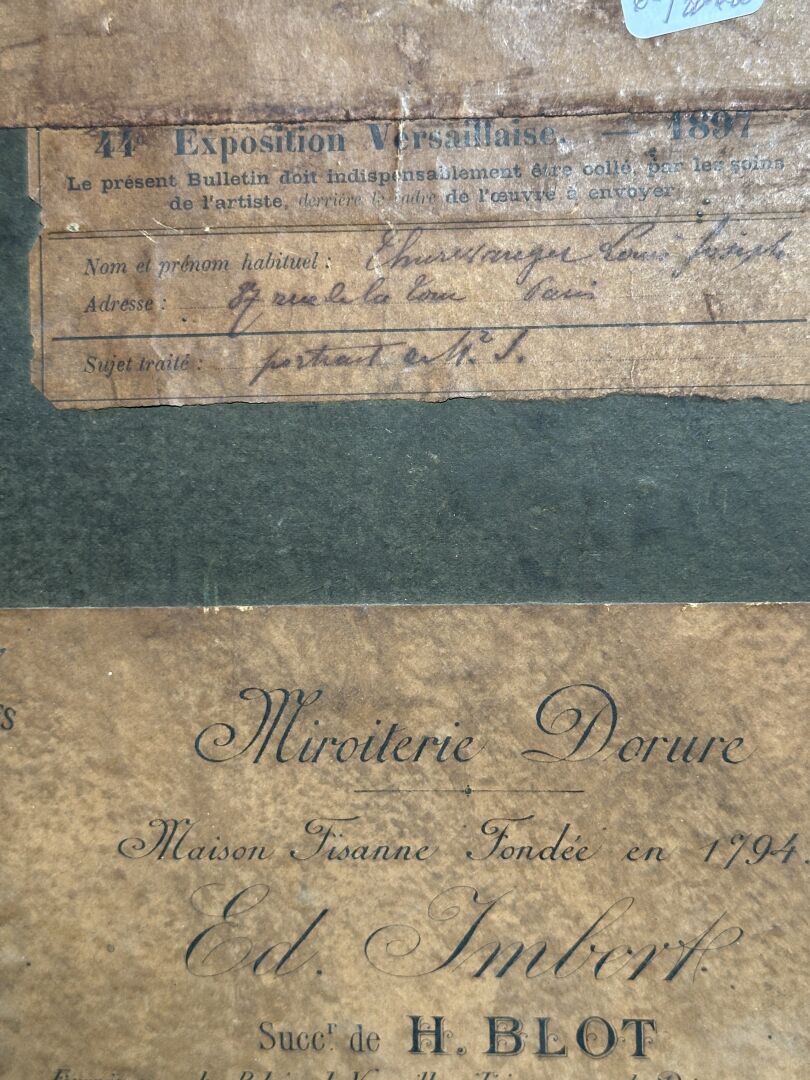 44e Exposition Versaillaise. — 1897
Le présent Bulletin doit indispensablement être collé, par les soins
de l'artiste, derrière le cadre de l'œuvre à envoyer
Nom et prénom habituel : Thurwanger Louis Joseph
Adresse : 37 rue de la Tour Paris
Sujet traité : portrait de Mr S.
Miroiterie Dorure
Maison Fisanne Fondée en 1794.
Ed. Imbert
Succr de H. BLOT